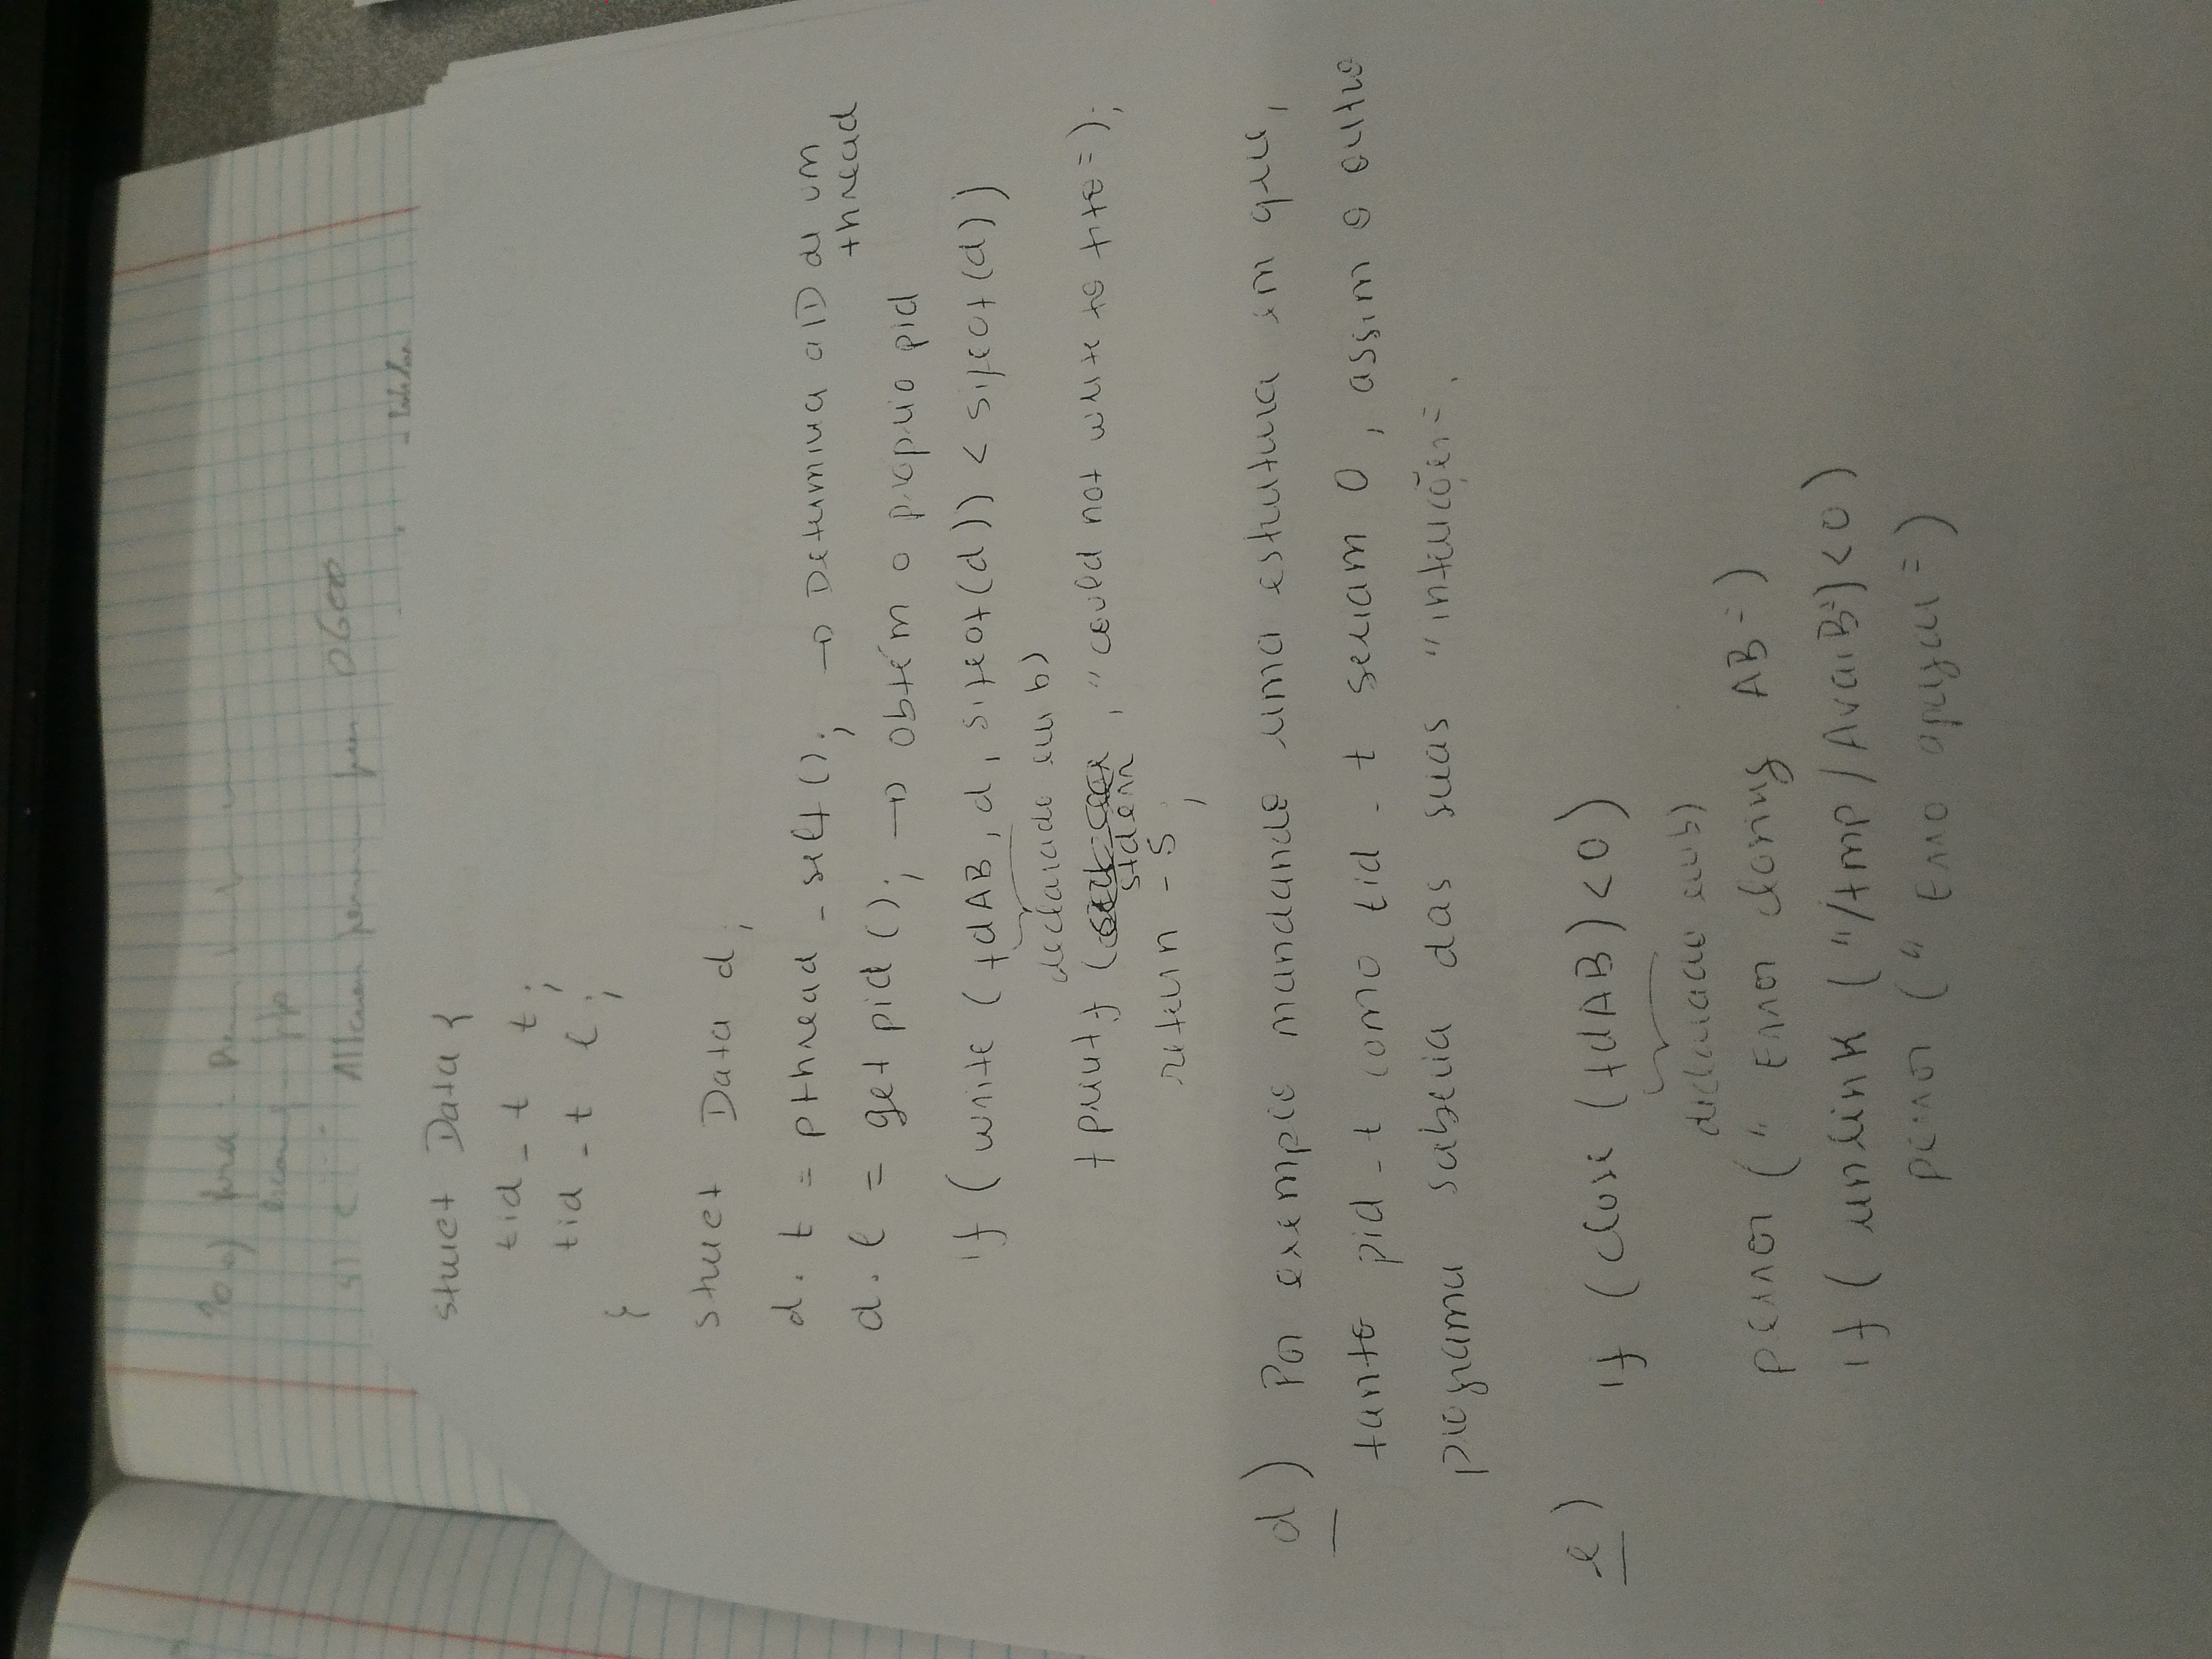 0600
struct Data {
tid_t t;
tid_t l;
}
struct Data d;
d.t = pthread_self(); → Determina a ID de um
thread
d.l = getpid(); → obtém o proprio pid
if (write (fdAB, d, sizeof(d)) < sizeof(d))
declarado em b)
fprintf (stderr, "could not write to fifo");
return -5;
d) Por exemplo mandando uma estrutura em que,
tanto pid_t como tid_t seriam 0, assim o outro
programa saberia das suas "intenções".
e) if (close (fdAB) < 0)
declarado em b)
perror (" Error closing AB")
if ( unlink ("/tmp/AvaiB") < 0 )
perror (" Erro apagar")